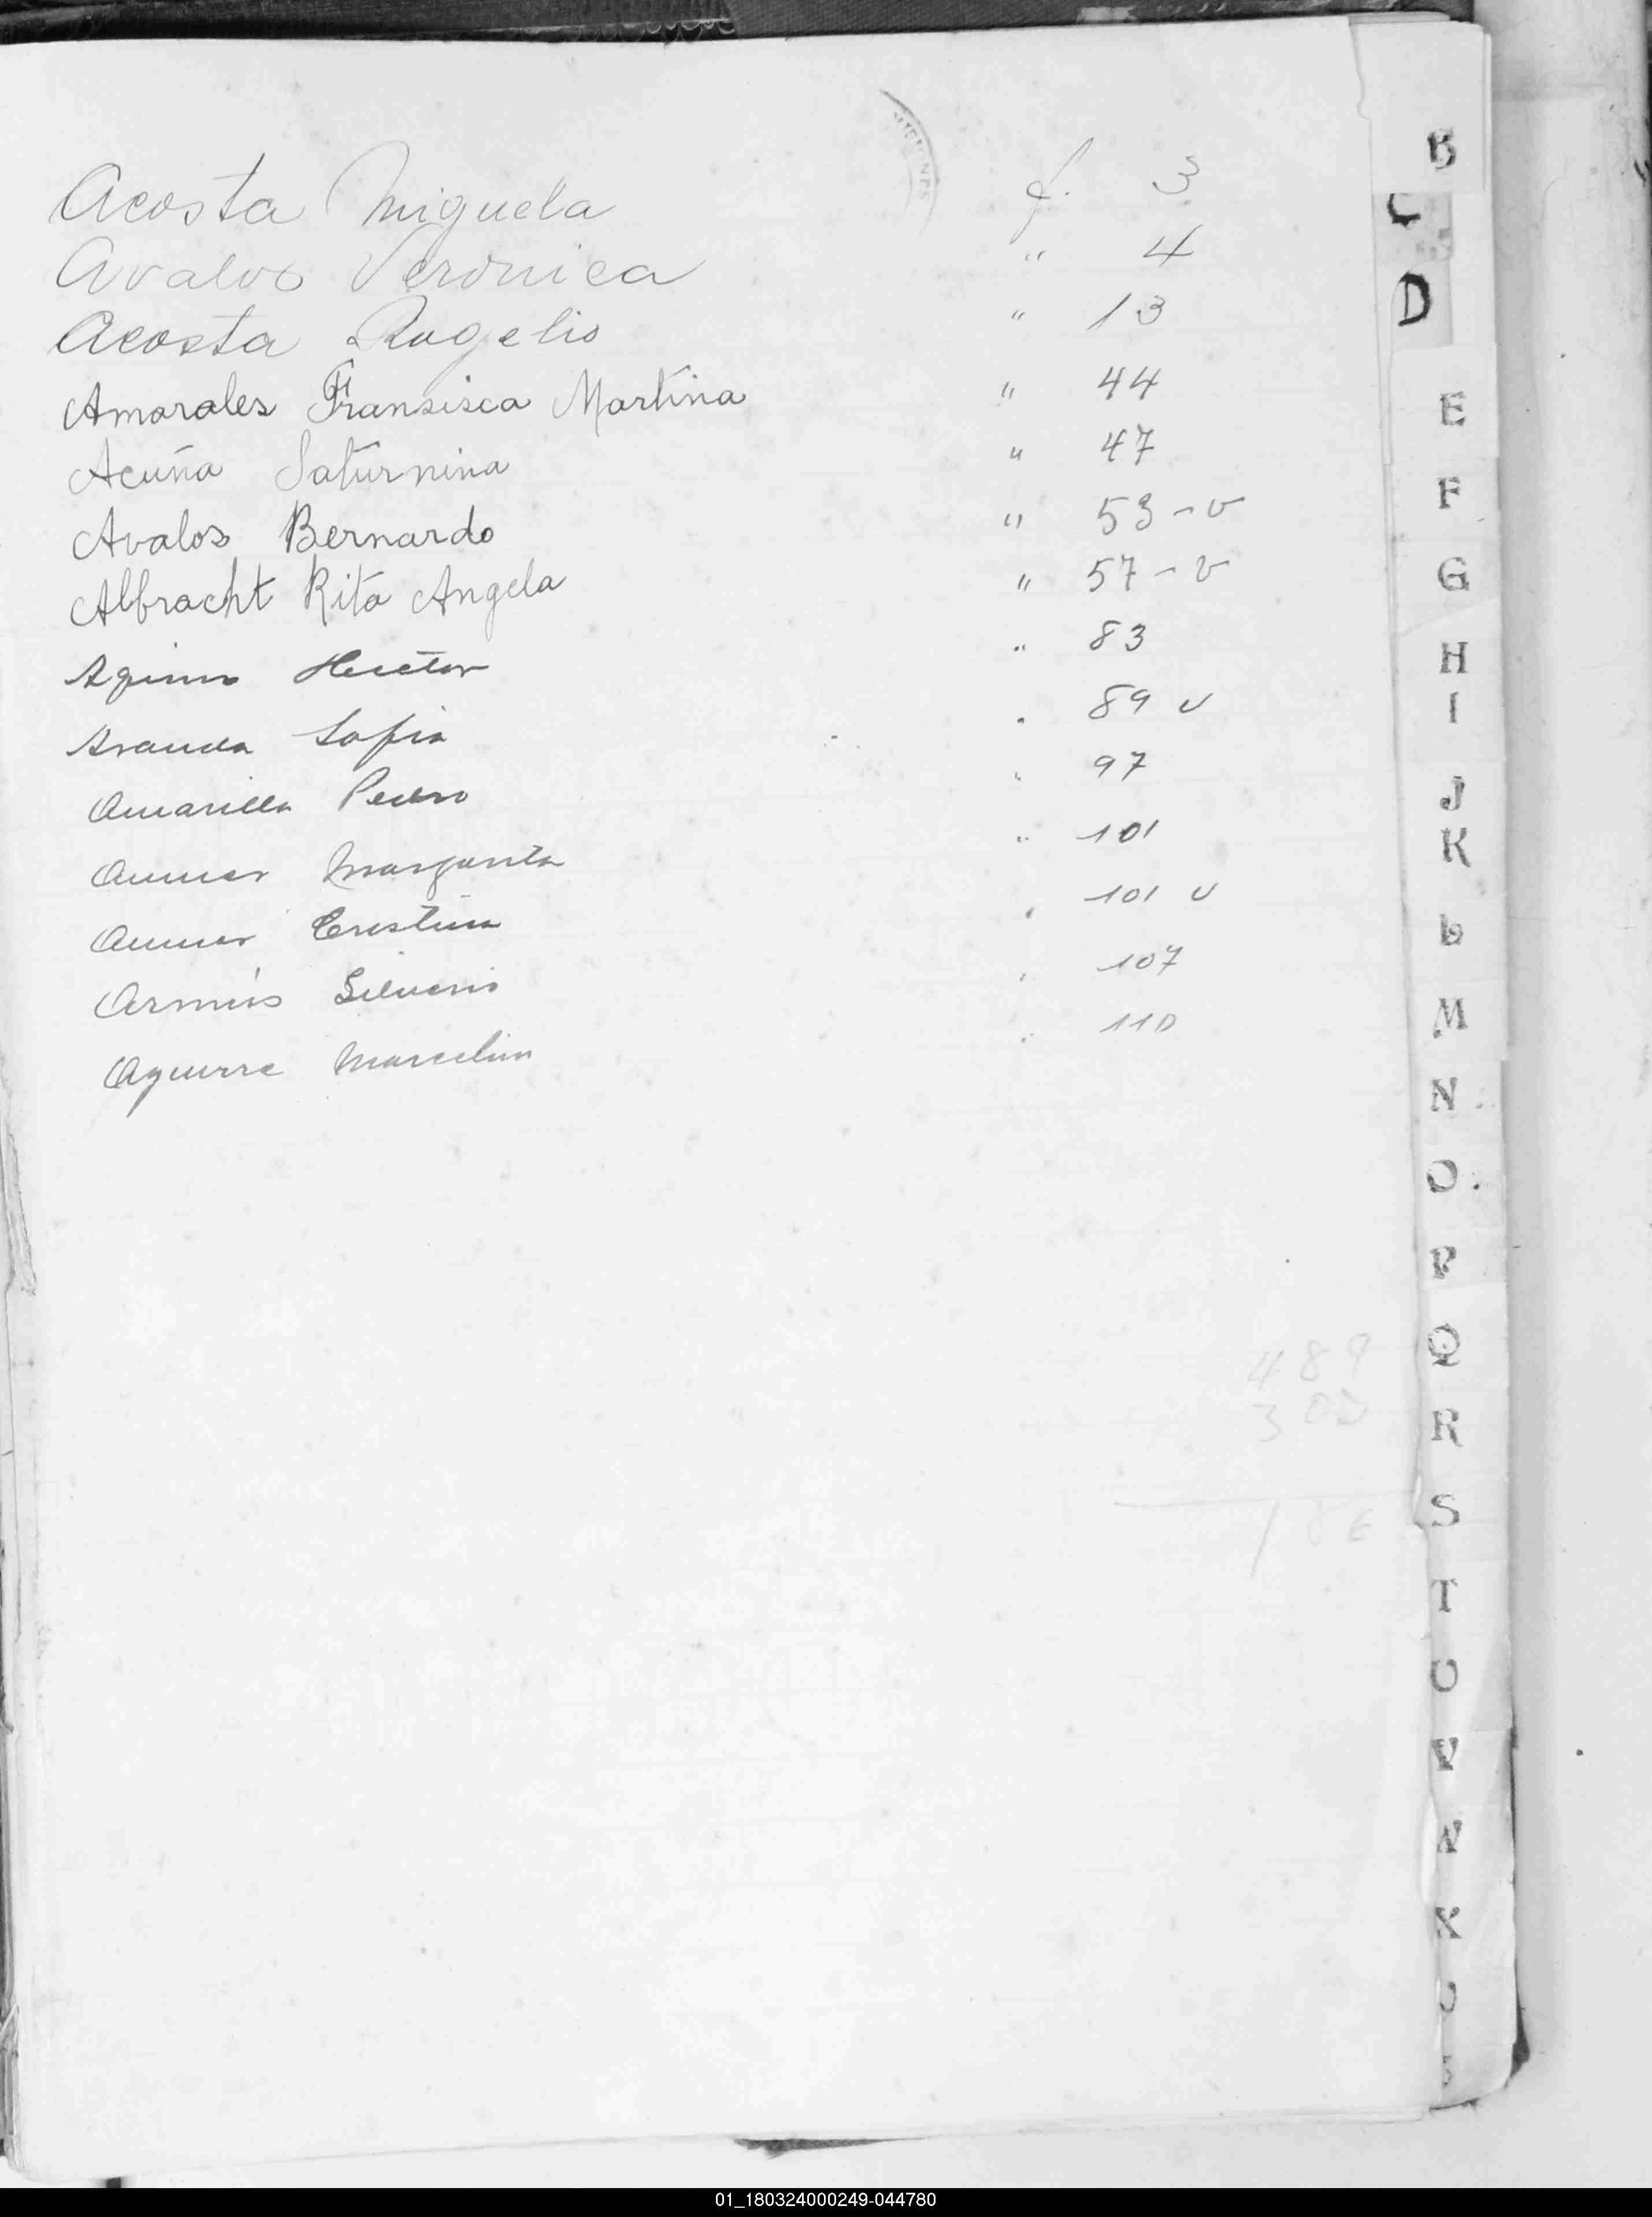 Acosta Miguela f. 3
Avalos Veronica " 4
Acosta Rogelio " 13
Amarales Fransisca Martina " 44
Acuña Saturnina " 47
Avalos Bernardo " 53-v
Albracht Rita Angela " 57-v
Aquino Hector " 83
Aranda Sofia " 89 v
Amarilla Pedro " 97
Margarita " 101
Cristina " 101 v
Silverio " 107
Aguirre Marcelina " 110
MISIONES
489
303
186
B
C
D
E
F
G
H
I
J
K
L
M
N
O
P
Q
R
S
T
U
V
W
X
01_180324000249-044780